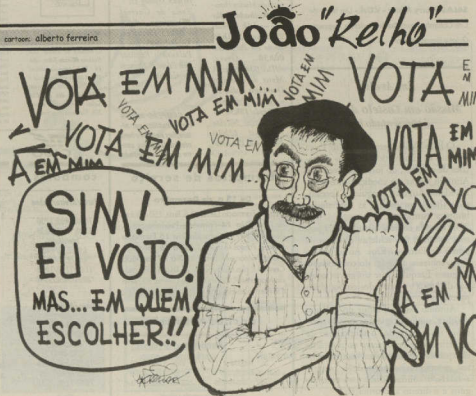 cartoon: alberto ferreira
João "Relho"
VOTA EM MIM...
VOTA EM MIM
VOTA EM MIM
VOTA EM MIM
VOTA EM MIM...
VOTA EM
VOTA
E
M
MI
VOTA EM
MIM
VOTA EM
MIM
VO
VOTA
A EM MIM
A EM M
M VO
SIM!
EU VOTO,
MAS... EM QUEM
ESCOLHER!!